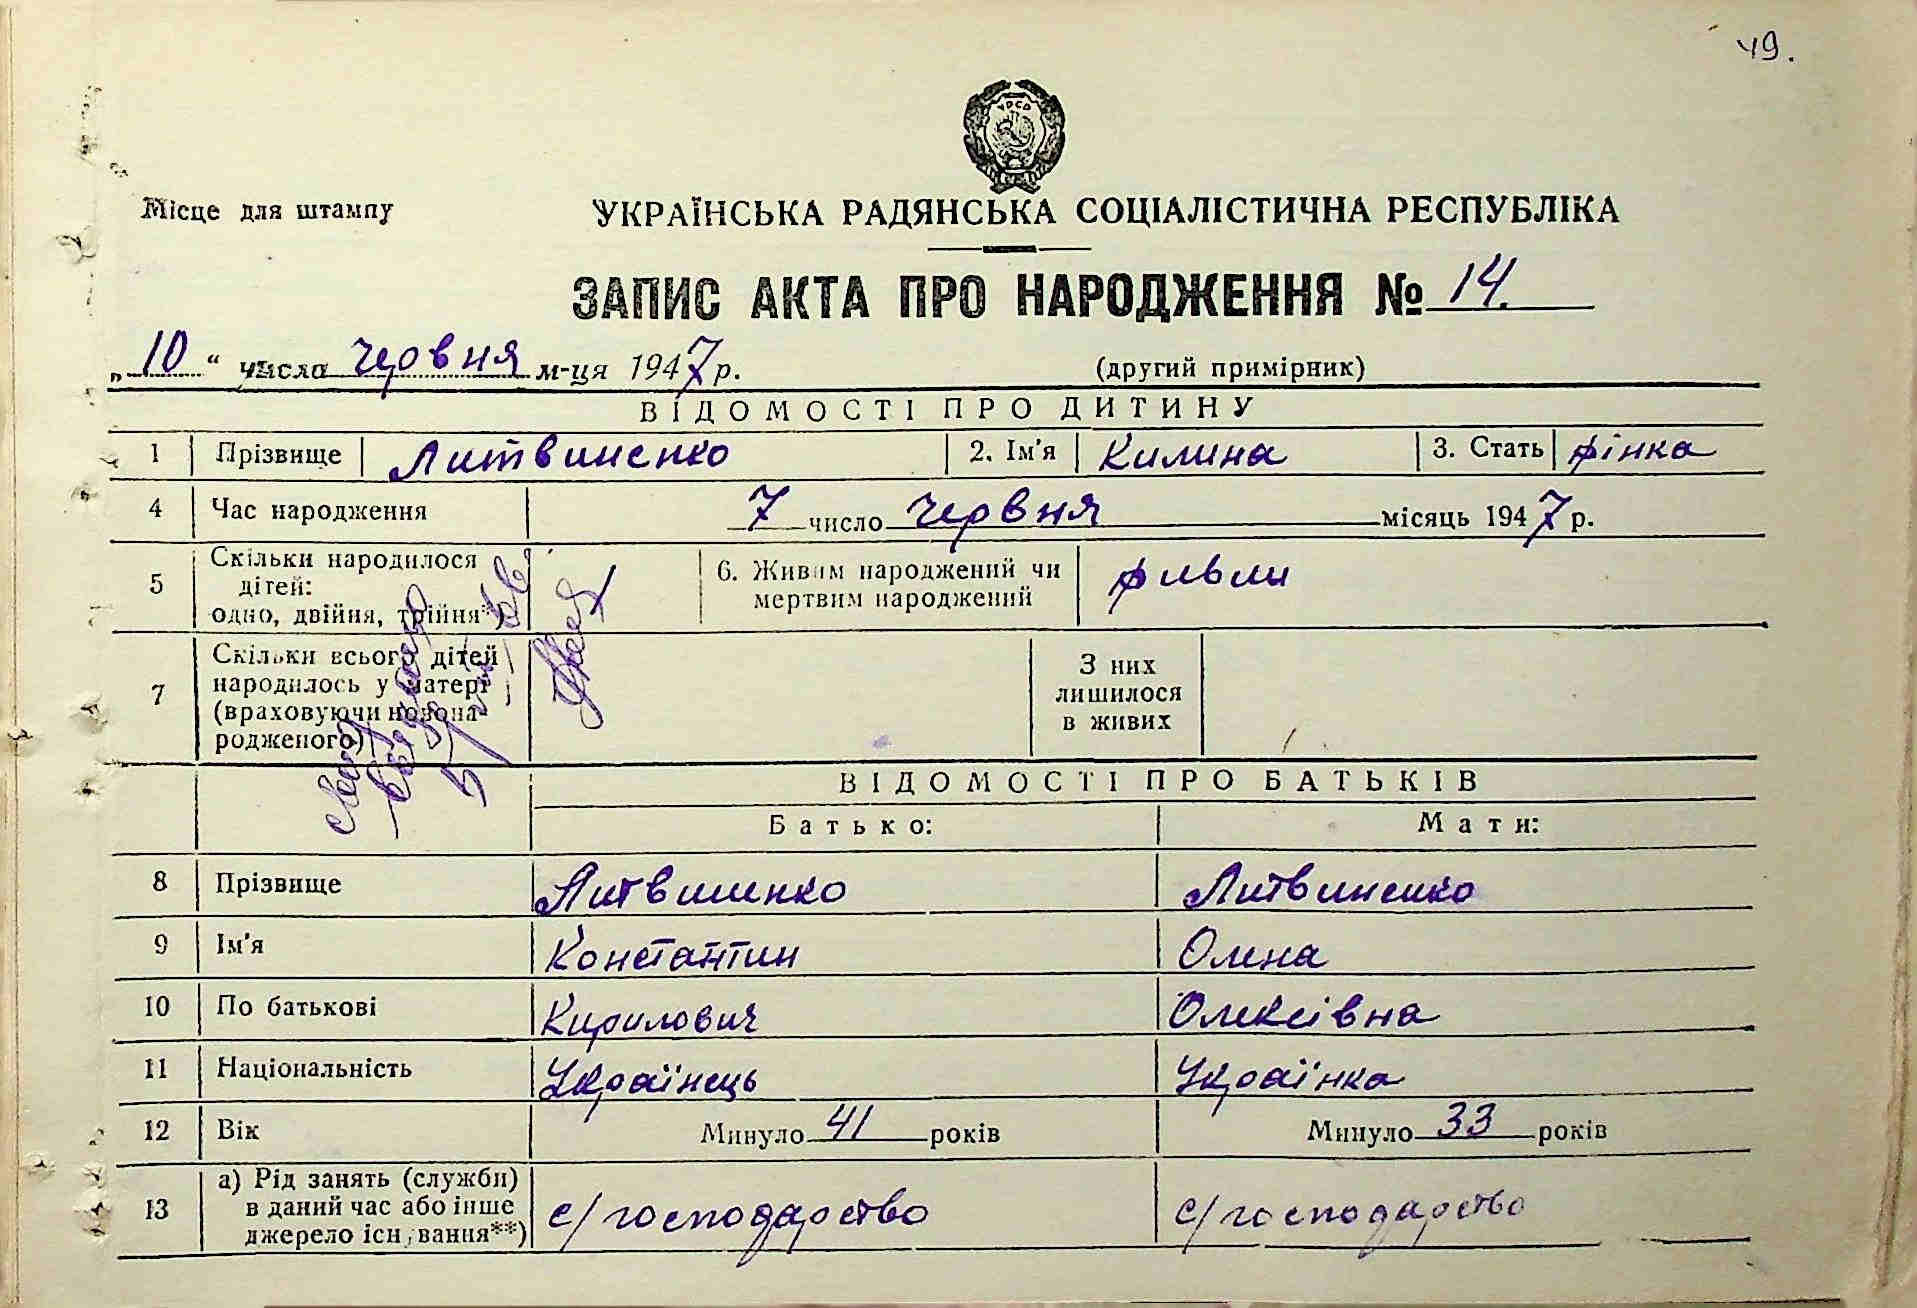 49.
УРСР
Місце для штампу
УКРАЇНСЬКА РАДЯНСЬКА СОЦІАЛІСТИЧНА РЕСПУБЛІКА
ЗАПИС АКТА ПРО НАРОДЖЕННЯ № 14.
„10“ числа червня м-ця 1947 р.
(другий примірник)
ВІДОМОСТІ ПРО ДИТИНУ
1 Прізвище Литвиненко 2. Ім'я Килина 3. Стать жінка
4 Час народження 7 число червня місяць 1947 р.
5 Скільки народилося
дітей:
одно, двійня, трійня*)
1
6. Живим народжений чи
мертвим народжений
живим
7 Скільки всього дітей
народилось у матері
(враховуючи новона-
родженого)
З них
лишилося
в живих
ВІДОМОСТІ ПРО БАТЬКІВ
Батько: Мати:
8 Прізвище Литвиненко Литвиненко
9 Ім'я Константин Олена
10 По батькові Кирилович Олексіївна
11 Національність Українець Українка
12 Вік Минуло 41 років Минуло 33 років
13 а) Рід занять (служби)
в даний час або інше
джерело існування**)
с/господарство с/господарство